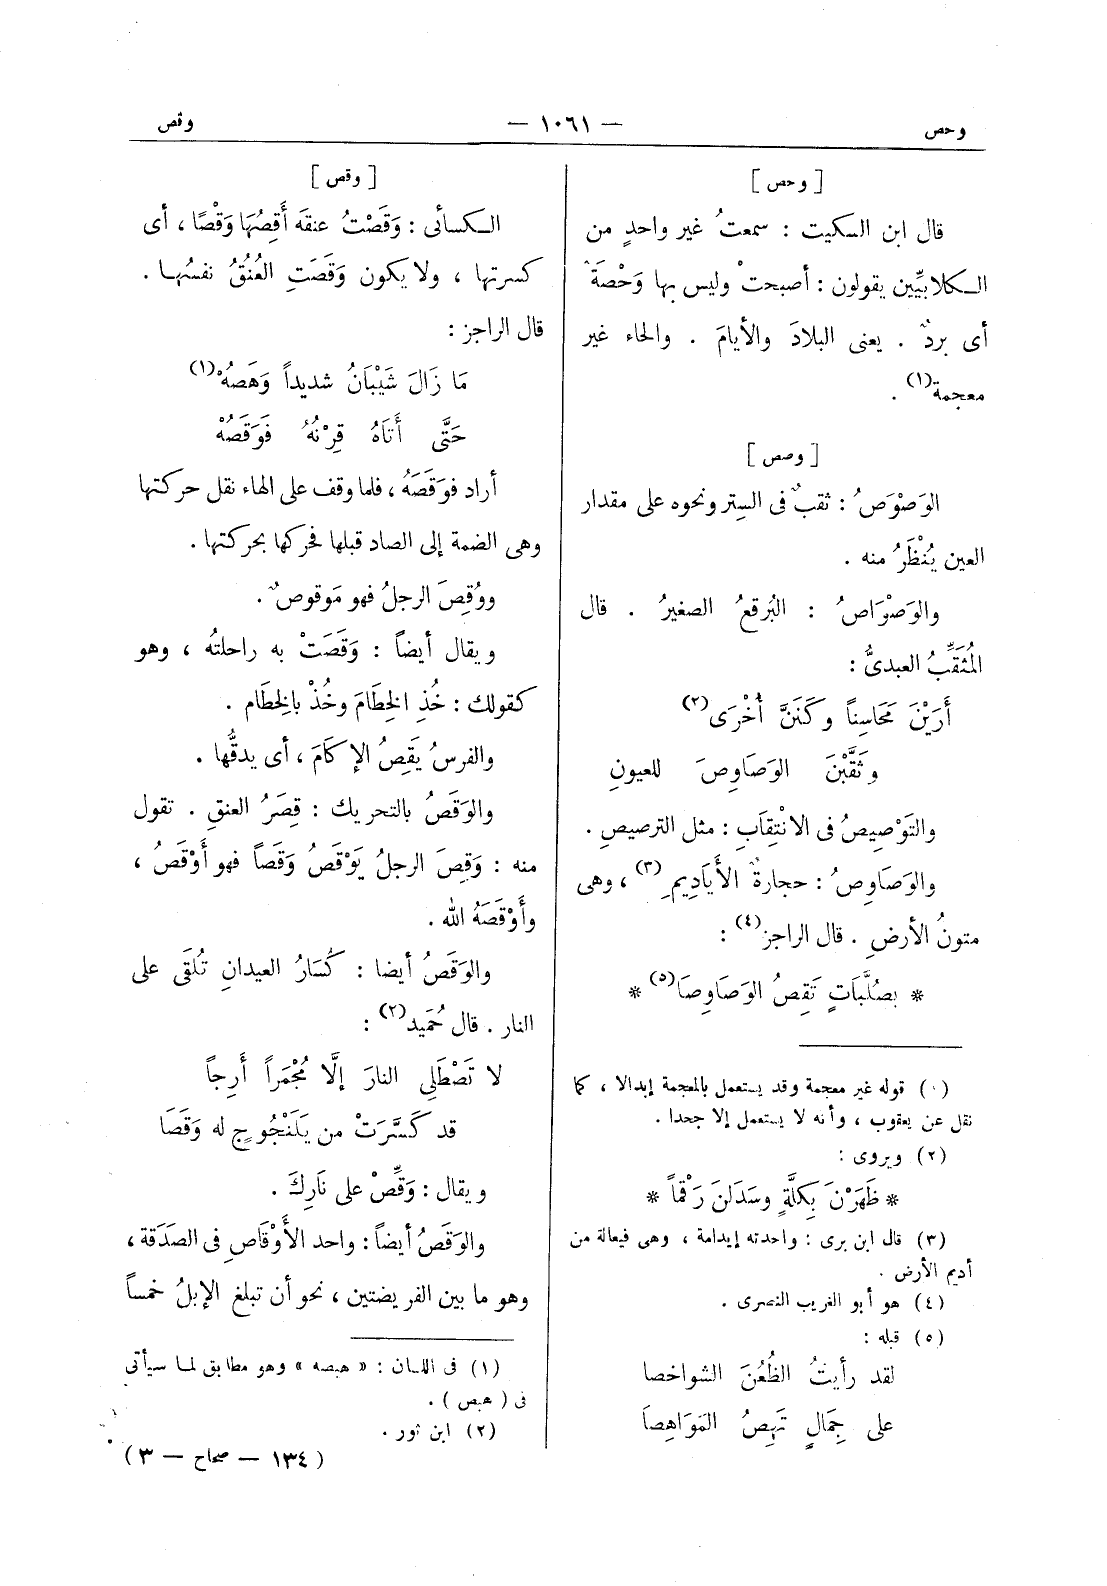 وحص
— ١٠٦١ —
وقص
[ وحص ]
قال ابن السكيت : سمعتُ غير واحدٍ من
الكلابيِّين يقولون : أصبحتْ وليس بها وَحْصَةٌ
أى بردٌ . يعنى البلادَ والأيامَ . والحاء غير
معجمة(١) .
[ وصص ]
الوَصْوَصُ : ثقبٌ فى السِتر ونحوه على مقدار
العين يُنْظَرُ منه .
والوَصْوَاصُ : البُرقعُ الصغيرُ . قال
المُثَقِّبُ العبدىُّ :
أَرَيْنَ مَحَاسِناً وكَنَنَّ أُخْرَى(٢)
وثَقَّبْنَ الوَصَاوِصَ للعيونِ
والتَوْصِيصُ فى الانْتِقَابِ : مثل الترصيصِ .
والوَصَاوِصُ : حجارةُ الأَيَادِيمِ(٣) ، وهى
متونُ الأرضِ . قال الراجز(٤) :
* بصُلَّبَاتٍ تَقِصُ الوَصَاوِصَا(٥) *
(١) قوله غير معجمة وقد يستعمل بالمعجمة إبدالا ، كما
نقل عن يعقوب ، وأنه لا يستعمل إلا جحدا .
(٢) ويروى :
* ظَهَرْنَ بِكِلَّةٍ وسَدَلنَ رَقْماً *
(٣) قال ابن برى : واحدته إيدامة ، وهى فيعالة من
أديم الأرض .
(٤) هو أبو الغريب النصرى .
(٥) قبله :
لقد رأيتُ الظُعُنَ الشواخصا
على جِمَالٍ تَهِصُ المَوَاهِصَا
[ وقص ]
الكسائى : وَقَصْتُ عنقَه أَقِصُهَا وَقْصًا ، أى
كسرتها ، ولا يكون وَقَصَتِ العُنُقُ نفسُها .
قال الراجز :
مَا زَالَ شَيْبَانُ شديداً وَهَصُهْ(١)
حَتَّى أَتَاهُ قِرْنُهُ فَوَقَصُهْ
أراد فوَقَصَهُ ، فلما وقف على الهاء نقل حركتها
وهى الضمة إلى الصاد قبلها فحركها بحركتها .
ووُقِصَ الرجلُ فهو مَوقوصٌ .
ويقال أيضاً : وَقَصَتْ به راحلتُه ، وهو
كقولك : خُذِ الخِطَامَ وخُذْ بالخِطَام .
والفرسُ يَقِصُ الإكَامَ ، أى يدقُّها .
والوَقَصُ بالتحريك : قِصَرُ العنقِ . تقول
منه : وَقِصَ الرجلُ يَوْقَصُ وَقَصاً فهو أَوْقَصُ ،
وأَوْقَصَهُ الله .
والوَقَصُ أيضا : كُسَارُ العيدانِ تُلقَى على
النار . قال حُمَيد(٢) :
لا تَصْطَلِى النارَ إلَّا مُجْمَراً أَرِجاً
قد كَسَّرَتْ من يَلَنْجُوجٍ له وَقَصَا
ويقال : وَقِّصْ على نَارِكَ .
والوَقَصُ أيضاً : واحد الأَوْقَاصِ فى الصَدَقة ،
وهو ما بين الفريضتين ، نحو أن تبلغ الإبلُ خمساً
(١) فى اللسان : « هبصه » وهو مطابق لما سيأتى
فى ( هبص ) .
(٢) ابن ثور .
( ١٣٤ — صحاح — ٣ )